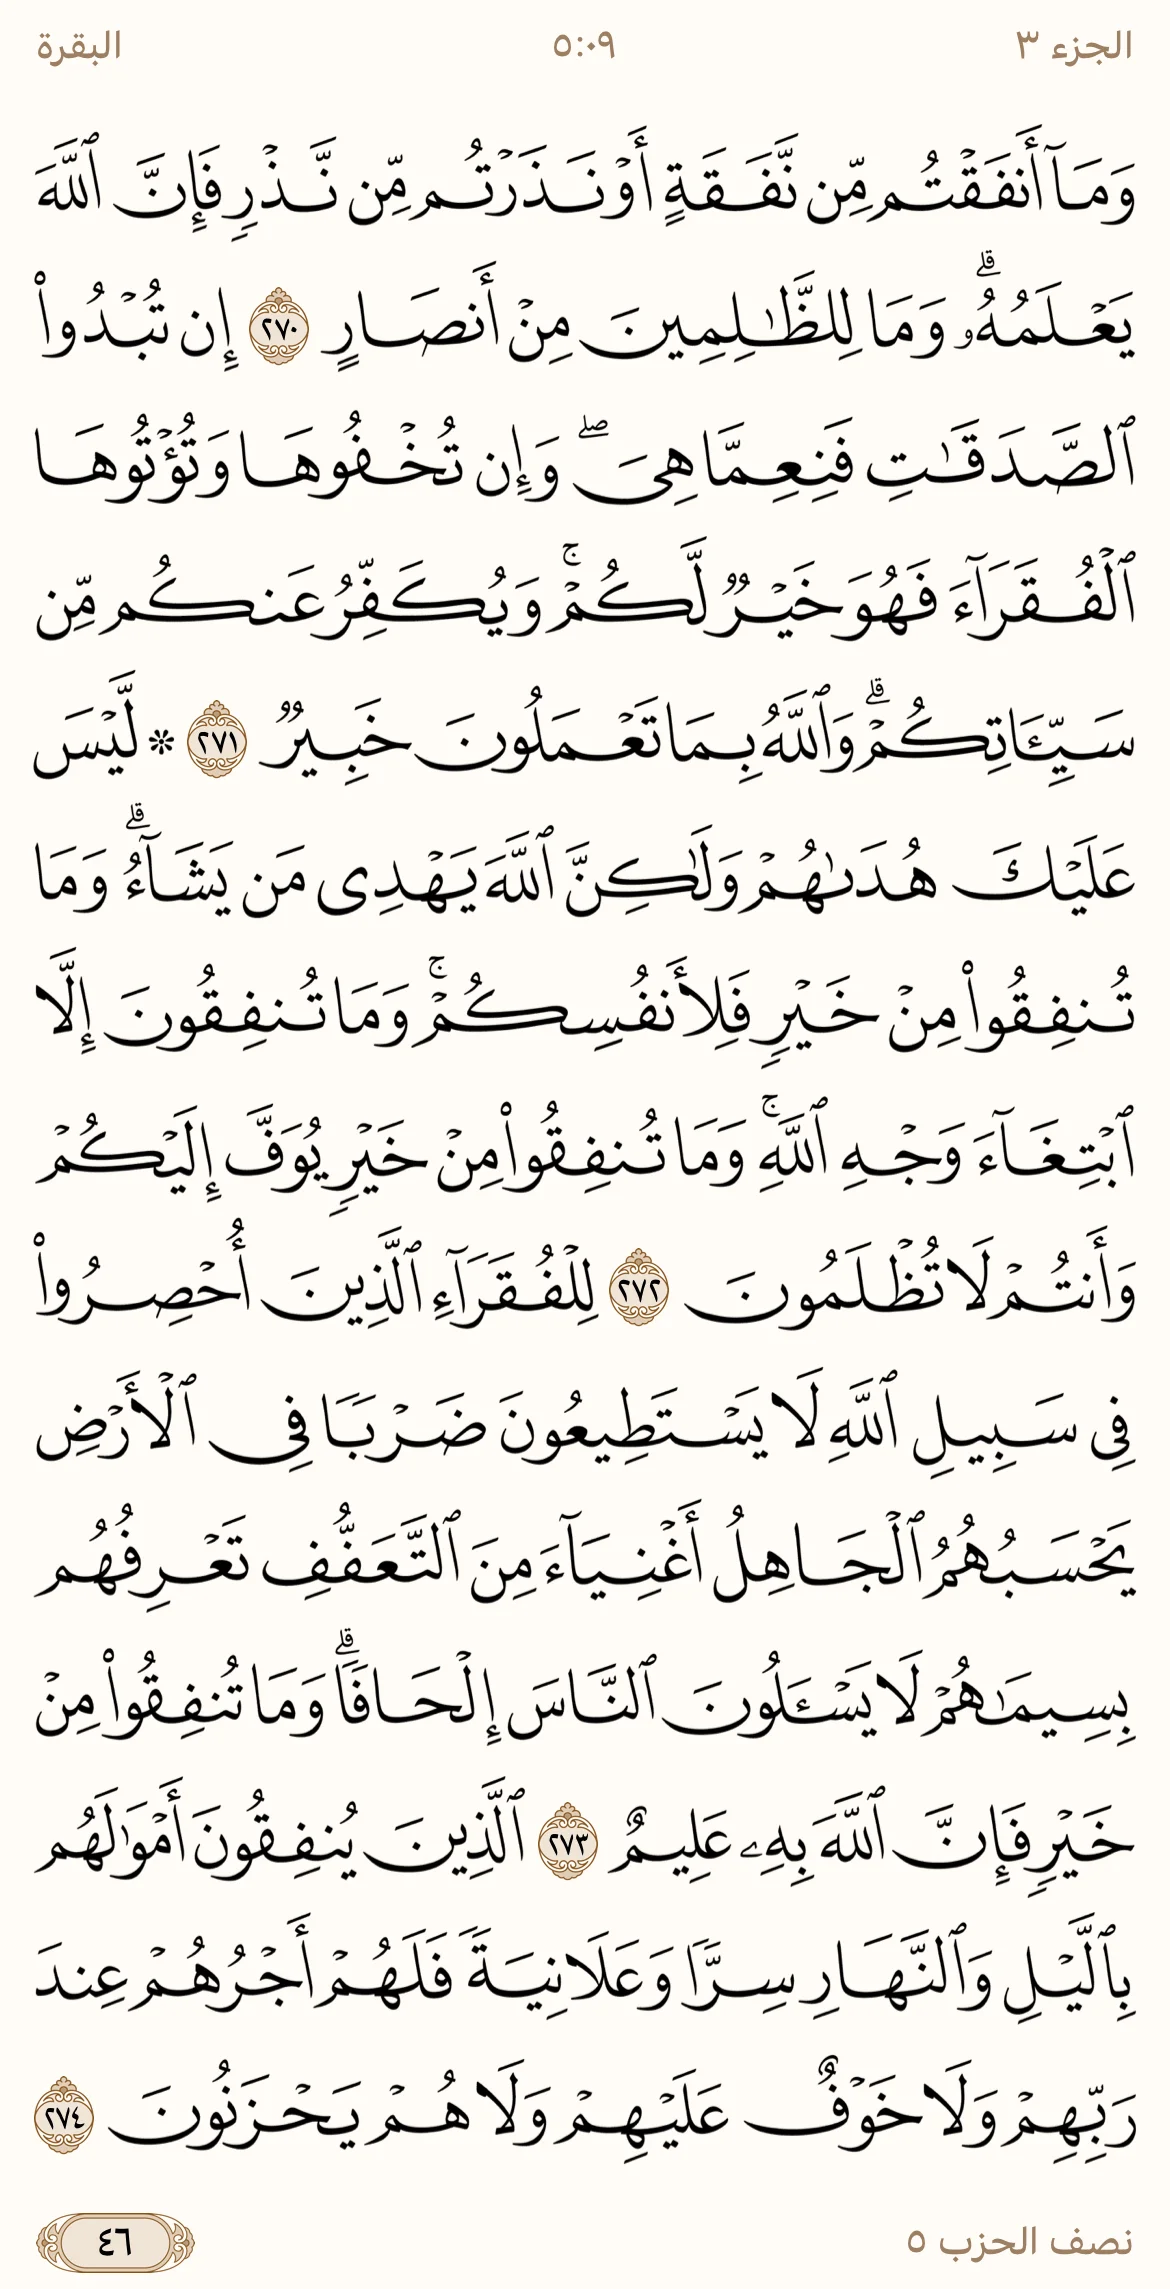 الجزء ٣
٥:٠٩
البقرة
وَمَآ أَنفَقۡتُم مِّن نَّفَقَةٍ أَوۡ نَذَرۡتُم مِّن نَّذۡرٖ فَإِنَّ ٱللَّهَ
يَعۡلَمُهُۥۗ وَمَا لِلظَّٰلِمِينَ مِنۡ أَنصَارٍ ٢٧٠ إِن تُبۡدُواْ
ٱلصَّدَقَٰتِ فَنِعِمَّا هِيَۖ وَإِن تُخۡفُوهَا وَتُؤۡتُوهَا
ٱلۡفُقَرَآءَ فَهُوَ خَيۡرٞ لَّكُمۡۚ وَيُكَفِّرُ عَنكُم مِّن
سَيِّـَٔاتِكُمۡۗ وَٱللَّهُ بِمَا تَعۡمَلُونَ خَبِيرٞ ٢٧١ ۞ لَّيۡسَ
عَلَيۡكَ هُدَىٰهُمۡ وَلَٰكِنَّ ٱللَّهَ يَهۡدِي مَن يَشَآءُۗ وَمَا
تُنفِقُواْ مِنۡ خَيۡرٖ فَلِأَنفُسِكُمۡۚ وَمَا تُنفِقُونَ إِلَّا
ٱبۡتِغَآءَ وَجۡهِ ٱللَّهِۚ وَمَا تُنفِقُواْ مِنۡ خَيۡرٖ يُوَفَّ إِلَيۡكُمۡ
وَأَنتُمۡ لَا تُظۡلَمُونَ ٢٧٢ لِلۡفُقَرَآءِ ٱلَّذِينَ أُحۡصِرُواْ
فِي سَبِيلِ ٱللَّهِ لَا يَسۡتَطِيعُونَ ضَرۡبٗا فِي ٱلۡأَرۡضِ
يَحۡسَبُهُمُ ٱلۡجَاهِلُ أَغۡنِيَآءَ مِنَ ٱلتَّعَفُّفِ تَعۡرِفُهُم
بِسِيمَٰهُمۡ لَا يَسۡـَٔلُونَ ٱلنَّاسَ إِلۡحَافٗاۗ وَمَا تُنفِقُواْ مِنۡ
خَيۡرٖ فَإِنَّ ٱللَّهَ بِهِۦ عَلِيمٌ ٢٧٣ ٱلَّذِينَ يُنفِقُونَ أَمۡوَٰلَهُم
بِٱلَّيۡلِ وَٱلنَّهَارِ سِرّٗا وَعَلَانِيَةٗ فَلَهُمۡ أَجۡرُهُمۡ عِندَ
رَبِّهِمۡ وَلَا خَوۡفٌ عَلَيۡهِمۡ وَلَا هُمۡ يَحۡزَنُونَ ٢٧٤
نصف الحزب ٥
٤٦